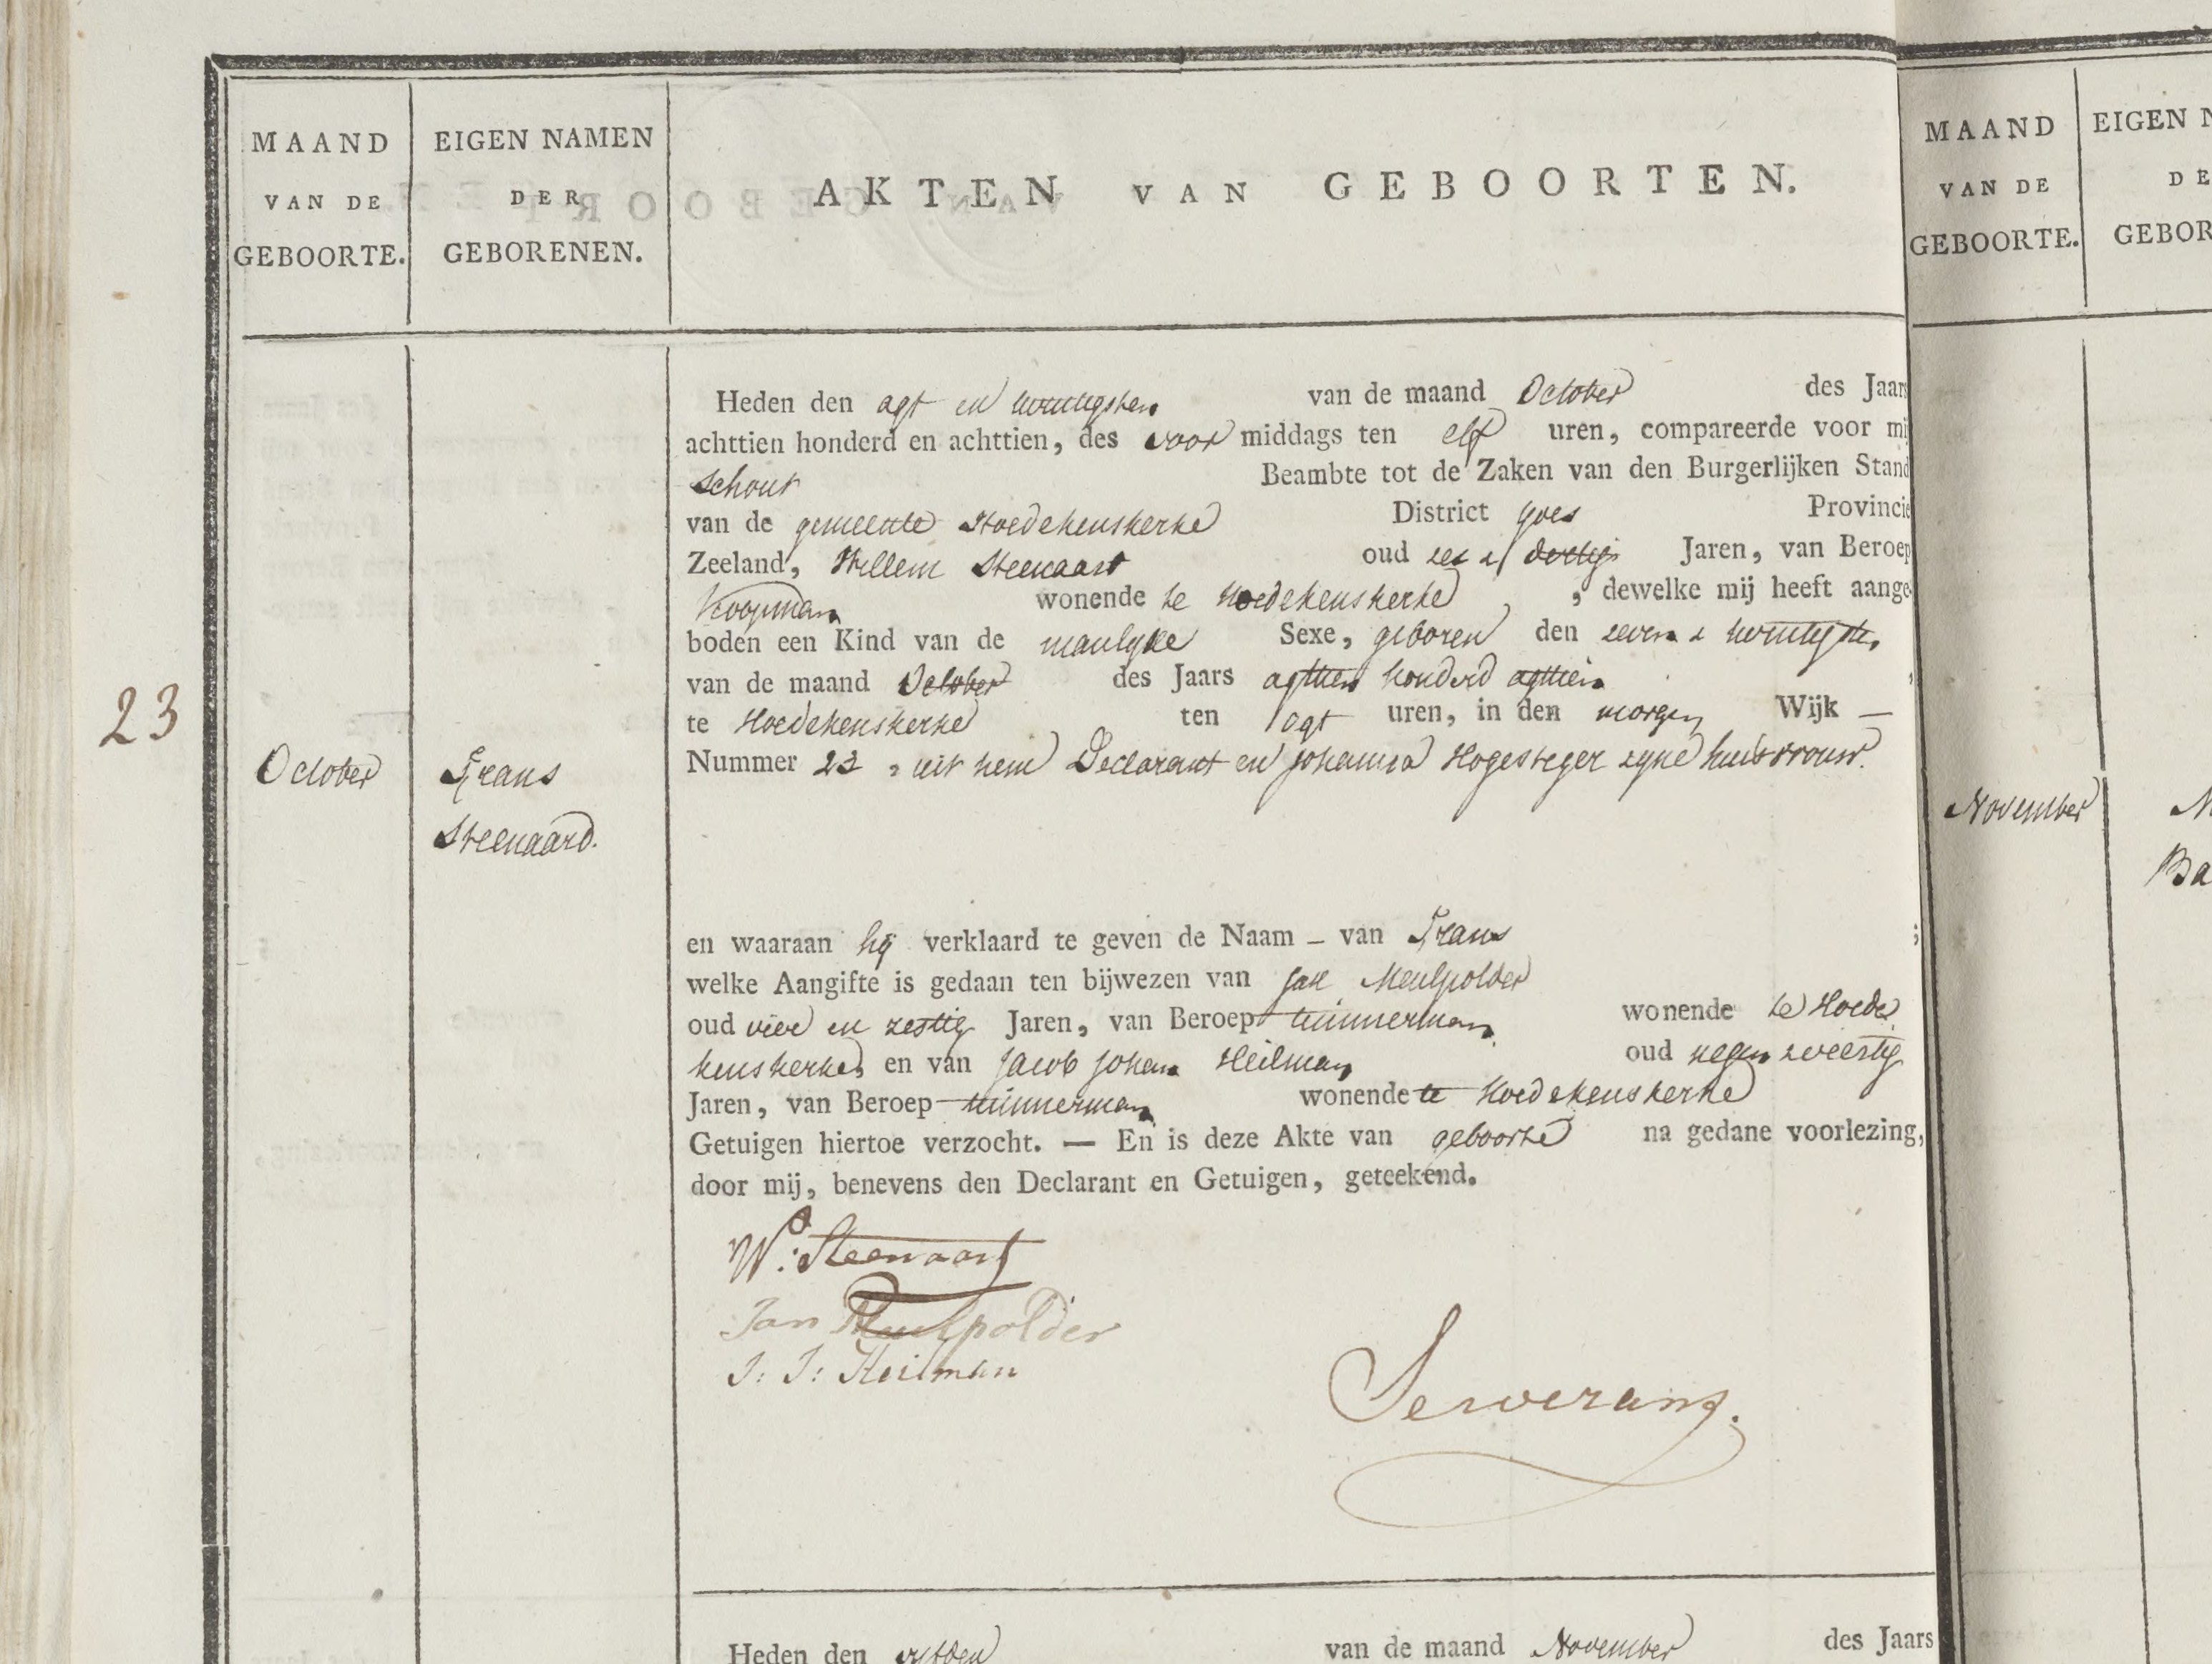 MAAND
VAN DE
GEBOORTE.
EIGEN NAMEN
DER
GEBORENEN.
AKTEN VAN GEBOORTEN.
Heden den agt en twintigsten van de maand October des Jaars
achttien honderd en achttien, des voor middags ten elf uren, compareerde voor mij
Schout Beambte tot de Zaken van den Burgerlijken Stand
van de gemeente Hoedekenskerke District Goes Provincie
Zeeland, Willem Steenaart oud zes & dertig Jaren, van Beroep
Koopman wonende te Hoedekenskerke, dewelke mij heeft aange-
boden een Kind van de manlyke Sexe, geboren den zeven & twintigste,
van de maand October des Jaars agttien honderd agttien,
te Hoedekenskerke ten agt uren, in den morgen Wijk —
Nummer 23, uit hem Declarant en Johanna Hogesteger zyne huisvrouw.
23
October
Frans
Steenaard.
en waaraan hij verklaard te geven de Naam – van Frans ;
welke Aangifte is gedaan ten bijwezen van Jan Meulpolder
oud vier en zestig Jaren, van Beroep timmerman wonende te Hoede
kenskerke, en van Jacob Johan Heilman oud negen & veertig
Jaren, van Beroep timmerman wonende te Hoedekenskerke
Getuigen hiertoe verzocht. — En is deze Akte van geboorte na gedane voorlezing,
door mij, benevens den Declarant en Getuigen, geteekend.
W: Steenaart
Jan Meulpolder
J: J: Heilman
Serverans.
Heden den vyfden van de maand November des Jaars
MAAND
VAN DE
GEBOORTE.
EIGEN N
DE
GEBOR
November
M
Ba